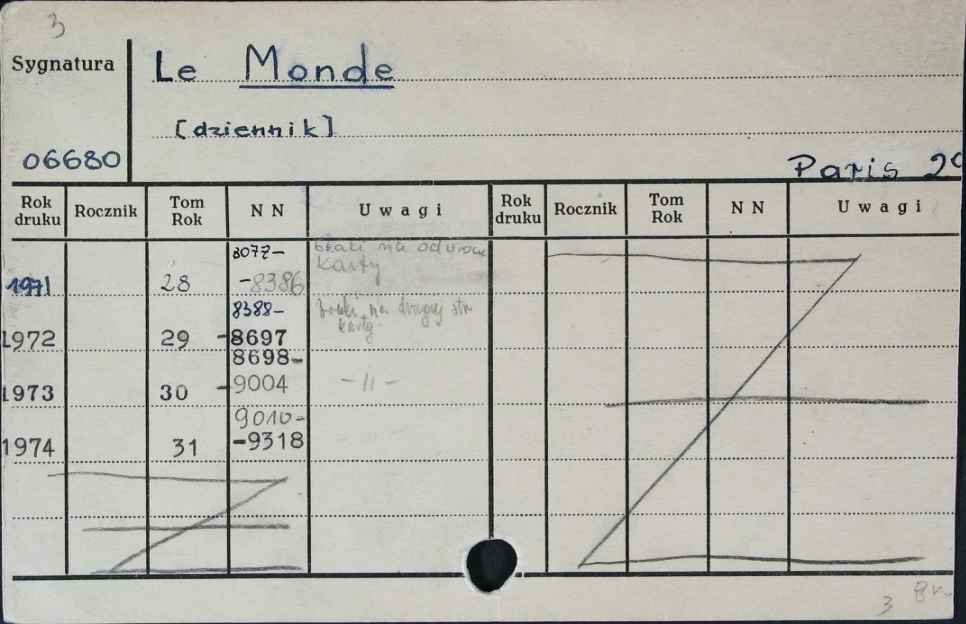 3
Sygnatura
Le Monde
[dziennik]
06680
Paris 2
Rok druku Rocznik Tom Rok N N Uwagi Rok druku Rocznik Tom Rok N N Uwagi
8077- braki na odwrocie
1971 28 -8386 karty
8388- braki na drugiej str
1972 29 -8697 karty
8698-
1973 30 -9004 -11-
9010-
1974 31 -9318
3